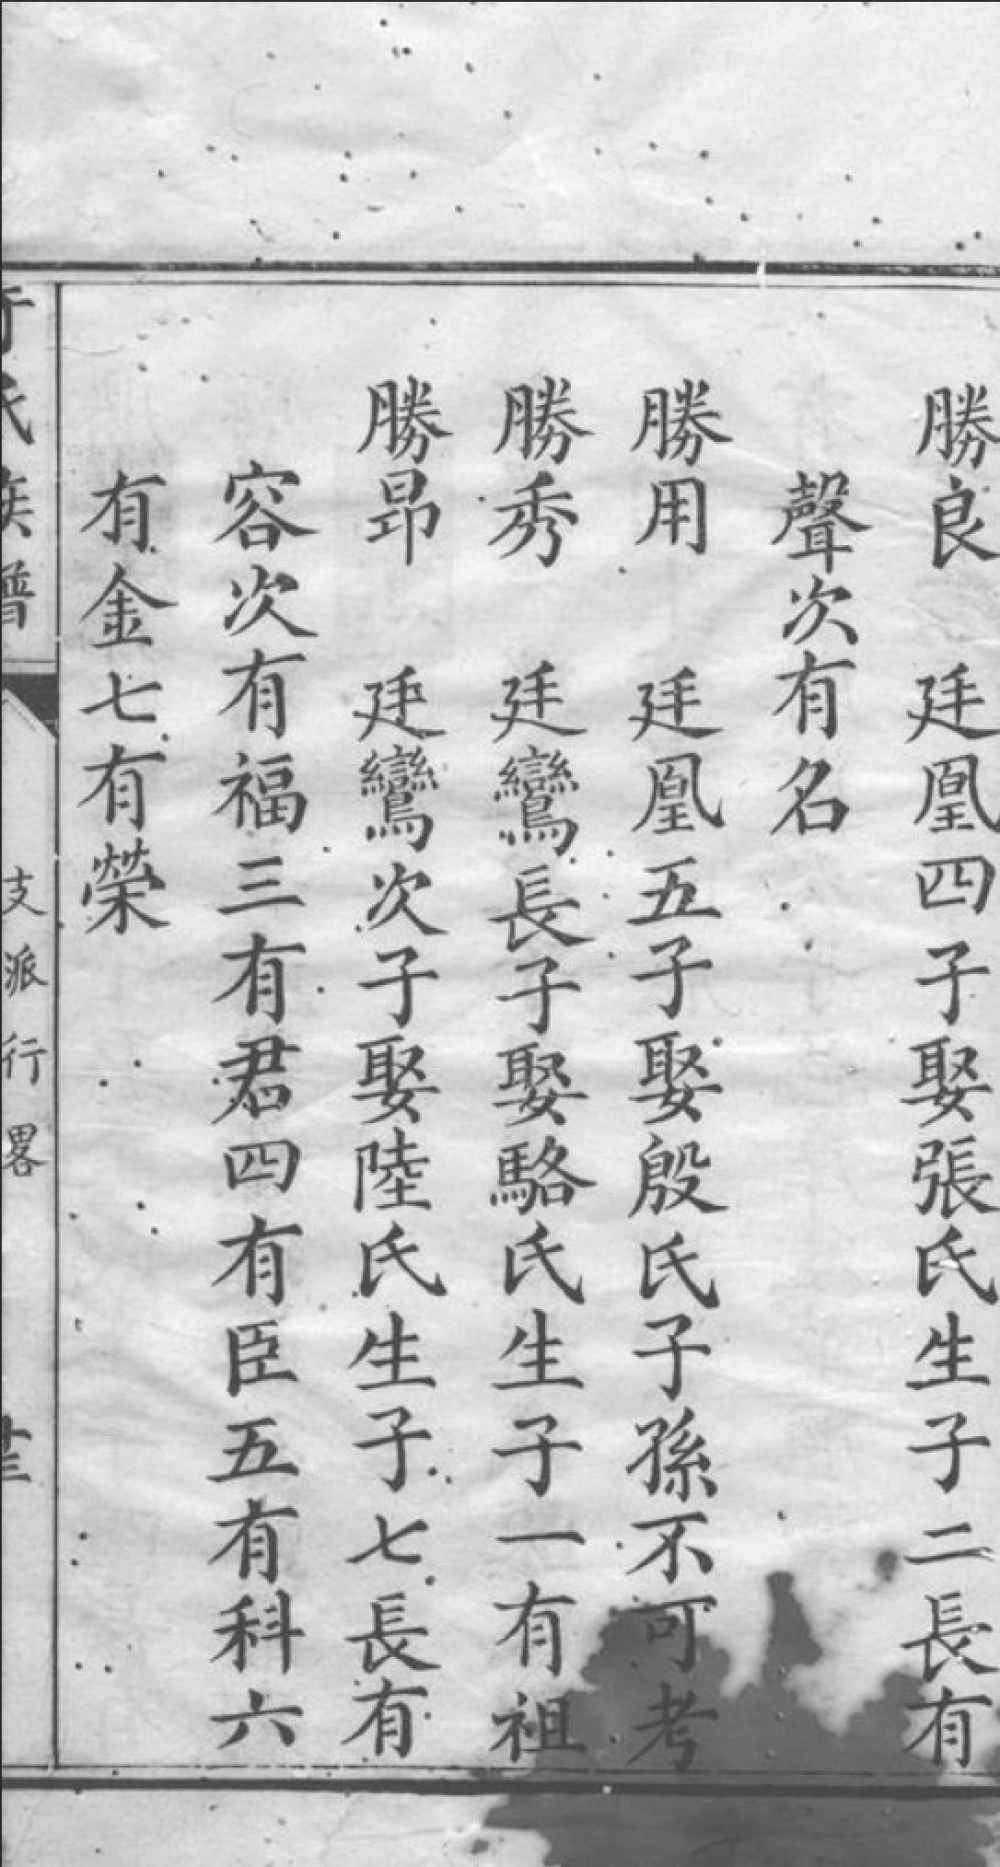 勝良　廷凰四子娶張氏生子二長有
聲次有名
勝用　廷凰五子娶殷氏子孫不可考
勝秀　廷鸞長子娶駱氏生子一有祖
勝昂　廷鸞次子娶陸氏生子七長有
容次有福三有君四有臣五有科六
有金七有榮
氏族譜　支派行畧